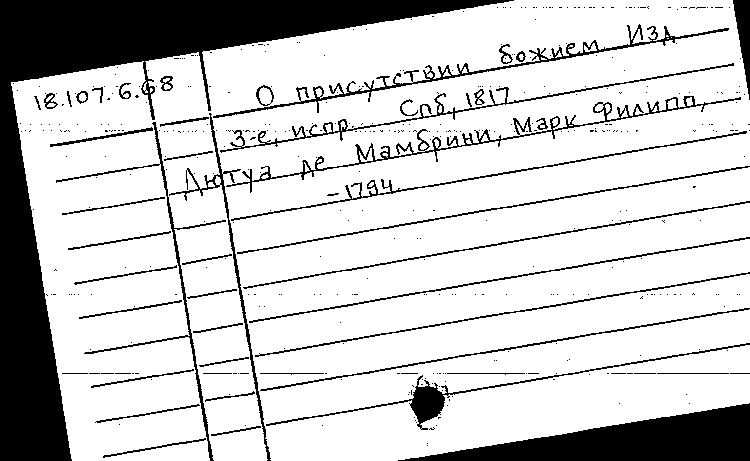 18.107.6.68
О присутствии божием Изд
3-е, испр. Спб, 1817
Дютуа де Мамбрини, Марк Филипп,
-1794